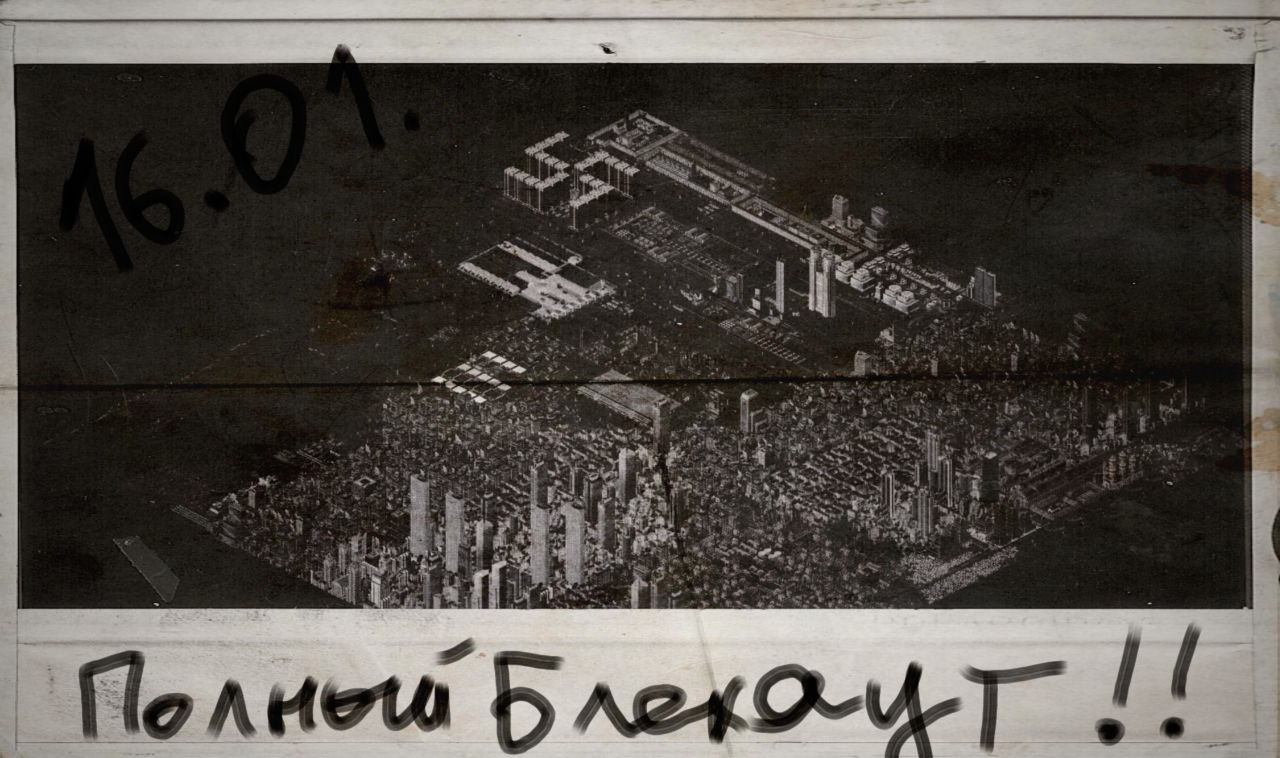 16.01.
Полный Блекаут!!